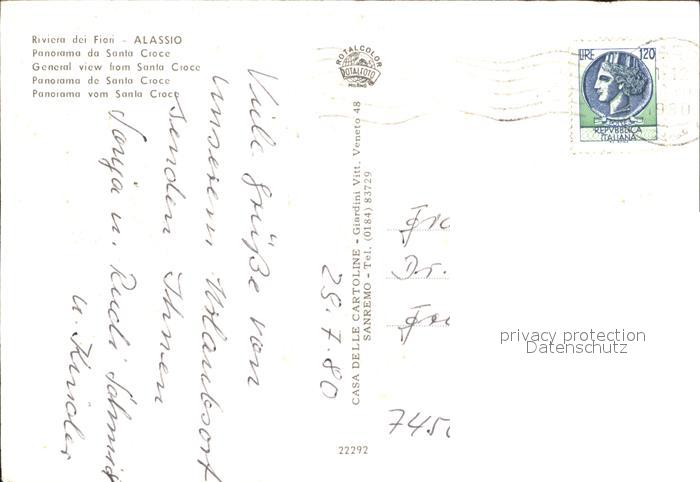 Riviera dei Fiori - ALASSIO
Panorama da Santa Croce
General view from Santa Croce
Panorama de Santa Croce
Panorama vom Santa Croce
ROTALCOLOR
ROTALFOTO
MILANO
LIRE 120
REPVBBLICA
ITALIANA
Viele Grüße von
unserem Urlaubsort
senden Ihnen
Sonja u. Rudi Schmid
u. Kinder
25.7.80
CASA DELLE CARTOLINE - Giardini Vitt. Veneto 48
SANREMO - Tel. (0184) 83729
Dr.
745
privacy protection
Datenschutz
22292